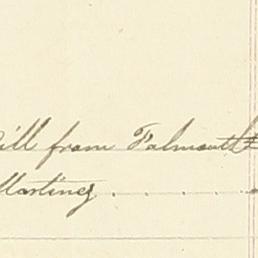 ill from Falmouth
Martinez . . . .